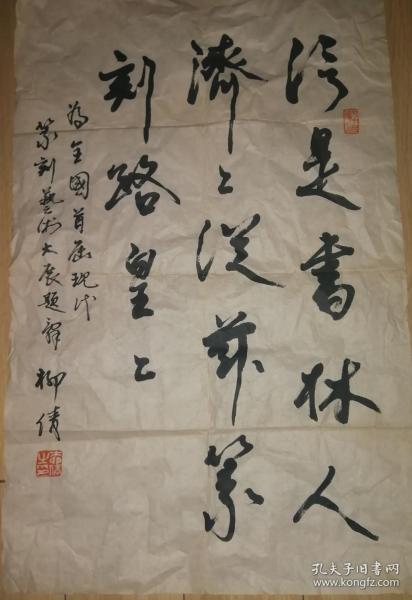 是書林人
濟〻從茲篆
刻路皇〻
為全國首屆現代
篆刻藝術大展題辭 柳倩
孔夫子旧书网
www.kongfz.com